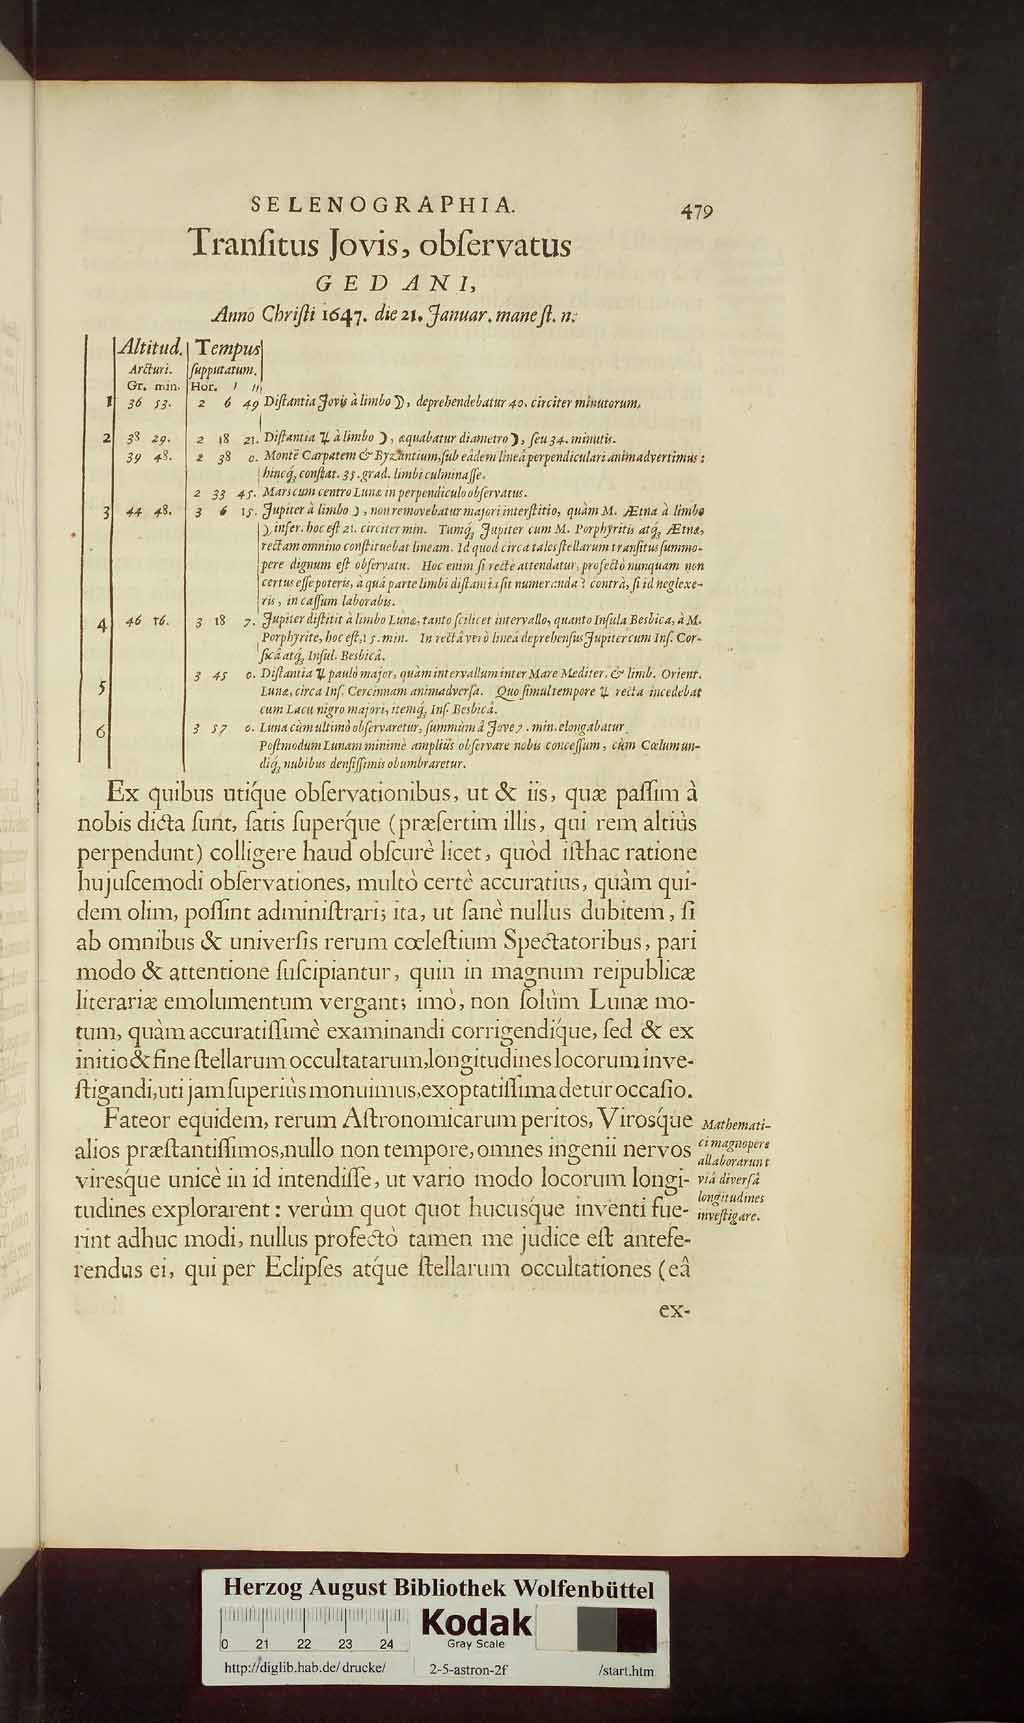 SELENOGRAPHIA. 479
Tranſitus Jovis, obſervatus
GEDANI,
Anno Chriſti 1647. die 21. Januar. mane ſt. n.
Altitud. Tempus
Arcturi. ſupputatum.
Gr. min. Hor. ′ ″
1 36 53. 2 6 49 Diſtantia Jovis à limbo ☽, deprehendebatur 40. circiter minutorum.
2 38 29. 2 18 21. Diſtantia ♃ à limbo ☽, æquabatur diametro ☽, ſeu 34. minutis.
39 48. 2 38 0. Montē Carpatem & Byzantium, ſub eâdem lineâ perpendiculari animadvertimus:
hincq́; conſtat. 35. grad. limbi culminaſſe.
2 33 45. Mars cum centro Lunæ in perpendiculo obſervatus.
3 44 48. 3 6 15. Jupiter à limbo ☽, non removebatur majori interſtitio, quàm M. Ætna à limbo
☽ infer. hoc eſt 21. circiter min. Tumq́; Jupiter cum M. Porphyritis atq́; Ætna,
rectam omnino conſtituebat lineam. Id quod circa tales ſtellarum tranſitus ſummo-
pere dignum eſt obſervatu. Hoc enim ſi rectè attendatur, profectò nunquam non
certus eſſe poteris, à quâ parte limbi diſtantia ſit numeranda: contrà, ſi id neglexe-
ris, in caſſum laborabis.
4 46 16. 3 18 7. Jupiter diſtitit à limbo Lunæ, tanto ſcilicet intervallo, quanto Inſula Besbica, à M.
Porphyrite, hoc eſt, 15. min. In rectâ verò lineâ deprehenſus Jupiter cum Inſ. Cor-
ſicâ atq́; Inſul. Besbicâ.
5 3 45 0. Diſtantia ♃ paulò major, quàm intervallum inter Mare Mediter. & limb. Orient.
Lunæ, circa Inſ. Cercinnam animadverſa. Quo ſimul tempore ♃ recta incedebat
cum Lacu nigro majori, itemq́; Inſ. Besbicâ.
6 3 57 0. Luna cùm ultimò obſervaretur, ſummùm â Jove 7. min. elongabatur.
Poſtmodum Lunam minimè ampliùs obſervare nobis conceſſum, cùm Cœlum un-
diq́; nubibus denſiſſimis obumbraretur.
Ex quibus utíque obſervationibus, ut & iis, quæ paſſim à
nobis dicta ſunt, ſatis ſuperq́ue (præſertim illis, qui rem altiùs
perpendunt) colligere haud obſcurè licet, quòd iſthac ratione
hujuſcemodi obſervationes, multò certè accuratius, quàm qui-
dem olim, poſſint adminiſtrari; ita, ut ſanè nullus dubitem, ſi
ab omnibus & univerſis rerum cœleſtium Spectatoribus, pari
modo & attentione ſuſcipiantur, quin in magnum reipublicæ
literariæ emolumentum vergant; imò, non ſolùm Lunæ mo-
tum, quàm accuratiſſimè examinandi corrigendíque, ſed & ex
initio & fine ſtellarum occultatarum, longitudines locorum inve-
ſtigandi, uti jam ſuperiùs monuimus, exoptatiſſima detur occaſio.
Fateor equidem, rerum Aſtronomicarum peritos, Virosq́ue
alios præſtantiſſimos, nullo non tempore, omnes ingenii nervos
viresq́ue unicè in id intendiſſe, ut vario modo locorum longi-
tudines explorarent: verùm quot quot hucusq́ue inventi fue-
rint adhuc modi, nullus profectò tamen me judice eſt antefe-
rendus ei, qui per Eclipſes atq́ue ſtellarum occultationes (eâ
Mathemati-
ci magnopere
allaborarunt
viâ diverſâ
longitudines
inveſtigare.
ex-
Herzog August Bibliothek Wolfenbüttel
Kodak
Gray Scale
0 21 22 23 24
http://diglib.hab.de/drucke/ 2-5-astron-2f /start.htm